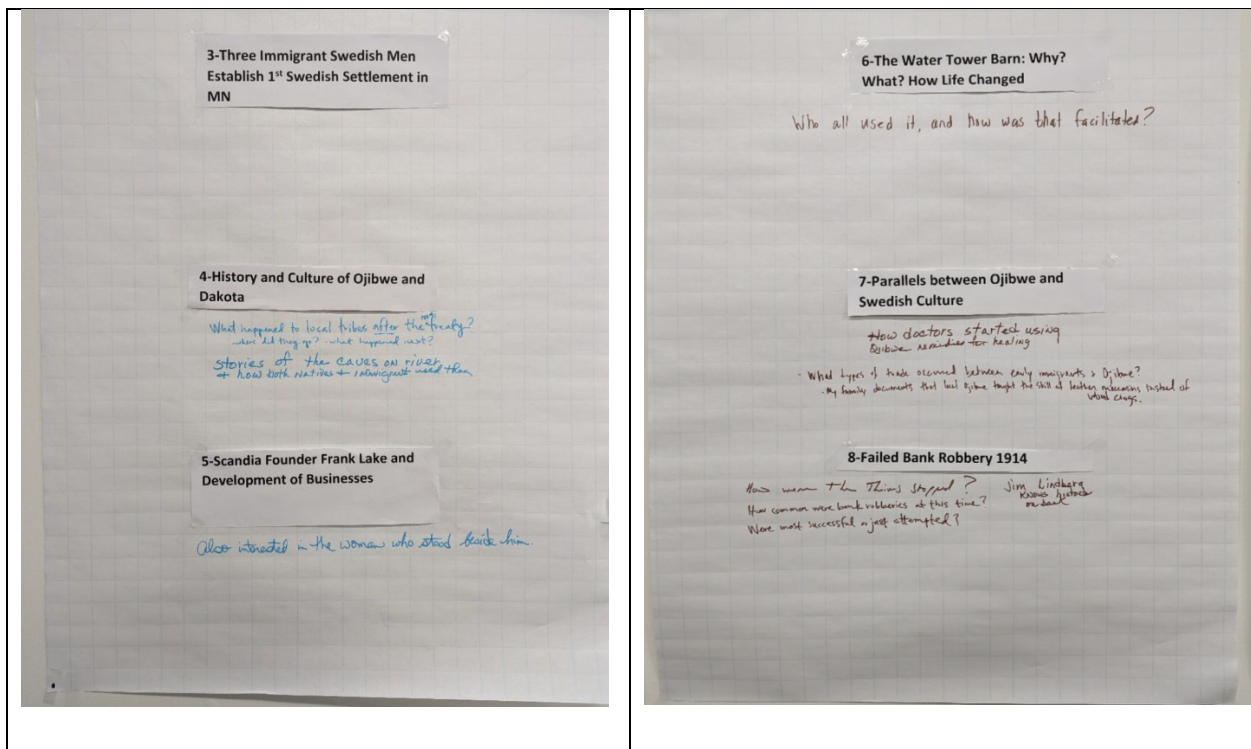 3-Three Immigrant Swedish Men
Establish 1st Swedish Settlement in
MN
4-History and Culture of Ojibwe and
Dakota
What happened to local tribes after the treaty?
where did they go? what happened next?
stories of the caves on river
+ how both Natives + immigrant used them
5-Scandia Founder Frank Lake and
Development of Businesses
Also interested in the woman who stood beside him.
6-The Water Tower Barn: Why?
What? How Life Changed
Who all used it, and how was that facilitated?
7-Parallels between Ojibwe and
Swedish Culture
How doctors started using
Ojibwe remedies for healing
- What types of trade occurred between early immigrants & Ojibwe?
- My family documents that local Ojibwe taught the skill of leather moccasins instead of
wood clogs.
8-Failed Bank Robbery 1914
How were the Thieves stopped?
How common were bank robberies at this time?
Were most successful or just attempted?
Jim Lindberg
knows history
on bank